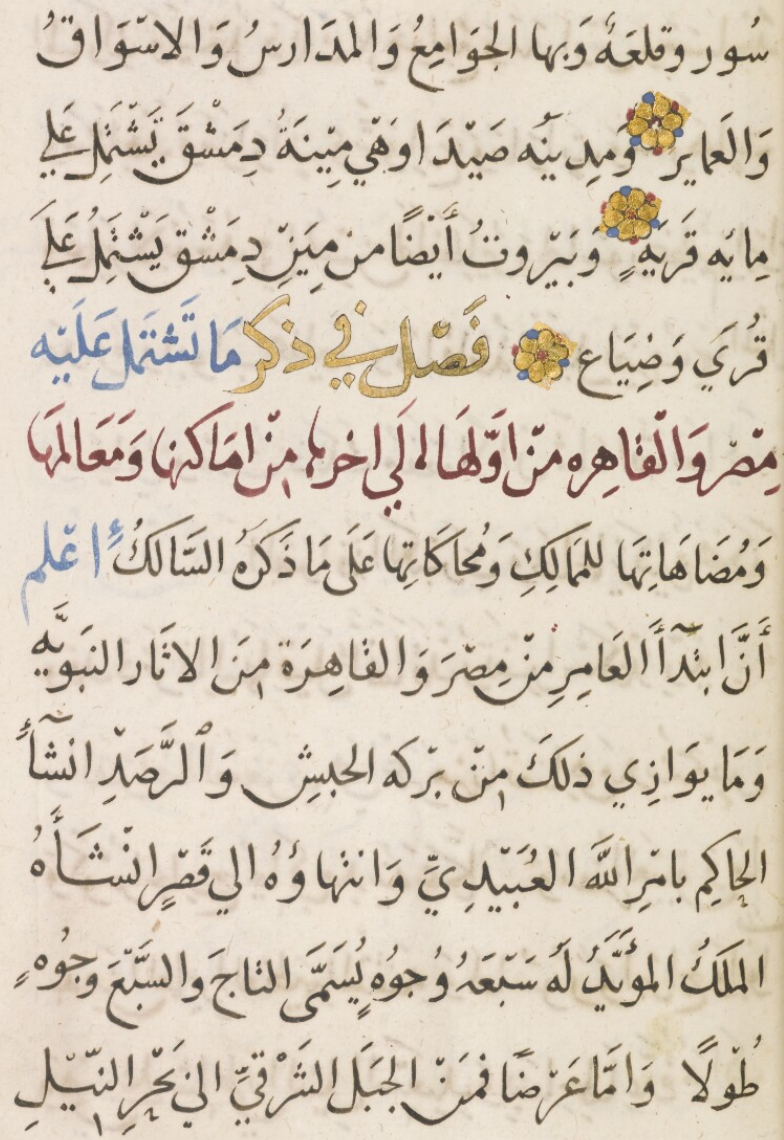 سُور وقلعَهٌ وَبها الجوَامِعُ وَالمدَارسُ وَالاسّوَاقُ
وَالعَماير وَمدِينَه صَيدَا وَهّي مِيّنَةُ دِمَشْقَ يَّشْتَمِلُ عَلي
مِايَه قَريَهٍ وَبَيرّوتُ أَيضًا من مِيَنِّ دِمَشْق يَشْتَمِلُ عَلَي
قُرَي وَضِيَاع فَصّل في ذكر مَا تَشْتَمل عَلَيّه
مِصّر وَالّقاهِره مّن اوَّلهَا الَي اخرها مِنّ امَاكنها وَمَعَالمَها
وَمُضَاهَاتِهَا للمَالِكِ وَمُحاكَاتِها عَلَى مَا ذَكَرهُ السَّالكُ اعّلم
أَنَّ ابتدَآأَ العَامِرِ مِنّ مِصّرَ وَالقاهِرَة مِنَ الاثَار النبَويَّه
وَمَا يوَازِي ذلكَ مِنّ برّكه الحبشِ وَالرَّصَدِّ انشآءُ
الحاكِم بامّرِ اللَّه العُبَيّدِيِّ وَانتهاؤهُ الي قَصّرٍ انّشَأَهُ
الملَكُ الموَّيَّدُ لَهُ سَبّعَهُ وُجوُهٍ يُسَمَّى التاجَ والسَّبّعَ وجُوهٍ
طُوّلًا وَامَّا عَرّضًا فَمنَ الجبَل الشَرْقيِّ الي بَحّرِ النِّيّلِ